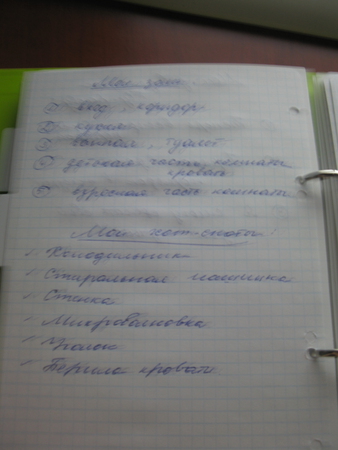 Мои зоны
① вход, коридор
② кухня
③ ванная, туалет
④ детская часть комнаты
кровать
⑤ взрослая часть комнаты
Мои хот-споты:
✓ Холодильник
✓ Стиральная машинка
✓ Стенка
✓ Микроволновка
✓ Уголок
✓ Перила кровати